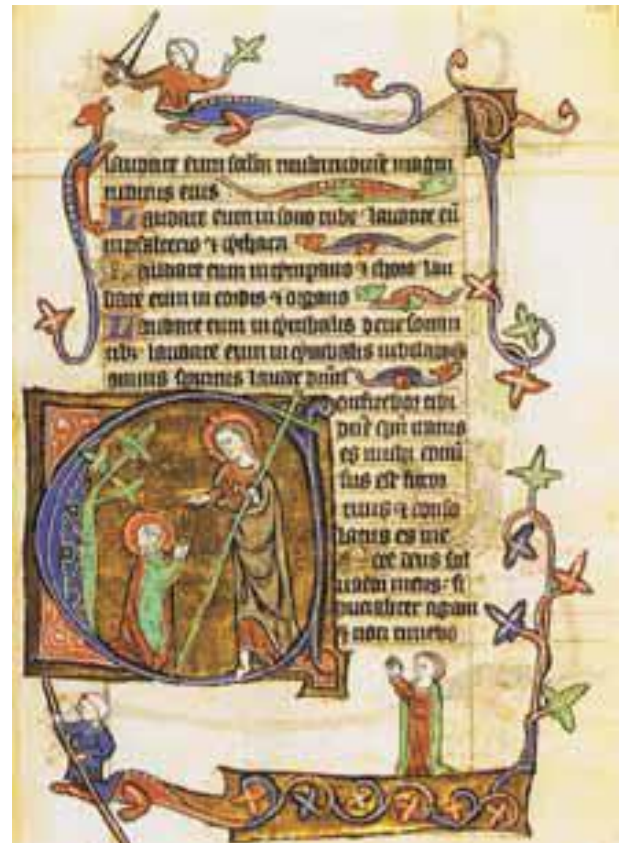 laudate eum scdm multitudinē magni
tudinis eius
Laudate eum in sono tube laudate eū
in psalterio ⁊ cythara
Laudate eum in tympano ⁊ choro lau
date eum in cordis ⁊ organo
Laudate eum in cymbalis bene sonan
tib; laudate eum in cymbalis iubilationis
omnis spiritus laudet dñm
Confitebor tibi
dñe qm̄ iratus
es michi conū
sus est furor
tuus ⁊ conso
latus es me
Ecce deus sal
uator meus fi
ducialiter agam
⁊ non timebo